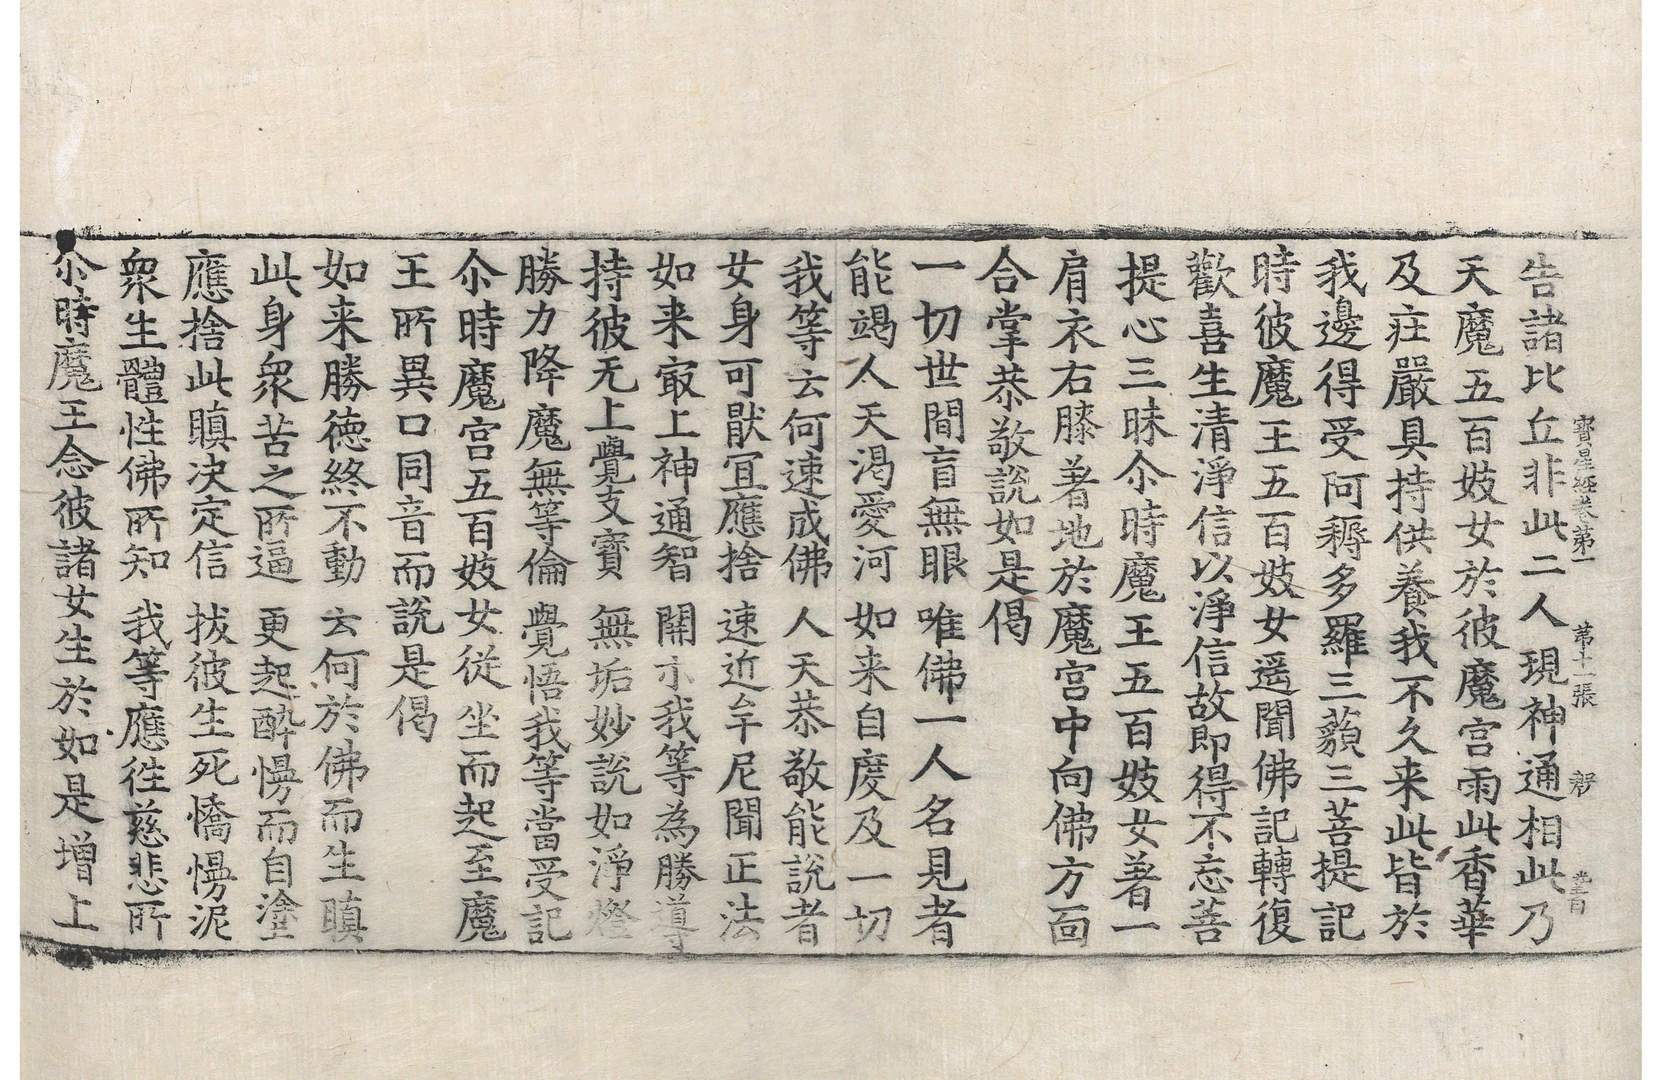 寶星經卷第一 第十一張
告諸比丘非此二人現神通相此乃
天魔五百妓女於彼魔宮雨此香華
及莊嚴具持供養我不久来此皆於
我邊得受阿耨多羅三藐三菩提記
時彼魔王五百妓女遥聞佛記轉復
歡喜生清淨信以淨信故即得不忘菩
提心三昧尒時魔王五百妓女著一
肩衣右膝著地於魔宮中向佛方面
合掌恭敬說如是偈
一切世間盲無眼 唯佛一人名見者
能竭人天渴愛河 如来自度及一切
我等云何速成佛 人天恭敬能說者
女身可猒冝應捨 速近牟尼聞正法
如来㝡上神通智 開示我等為勝導
持彼无上覺支寶 無垢妙說如淨燈
勝力降魔無等倫 覺悟我等當受記
尒時魔宮五百妓女從坐而起至魔
王所異口同音而說是偈
如来勝德終不動 云何於佛而生瞋
此身衆苦之所逼 更起醉慢而自塗
應捨此瞋决定信 拔彼生死憍慢泥
衆生體性佛所知 我等應徃慈悲所
尒時魔王念彼諸女生於如是增上